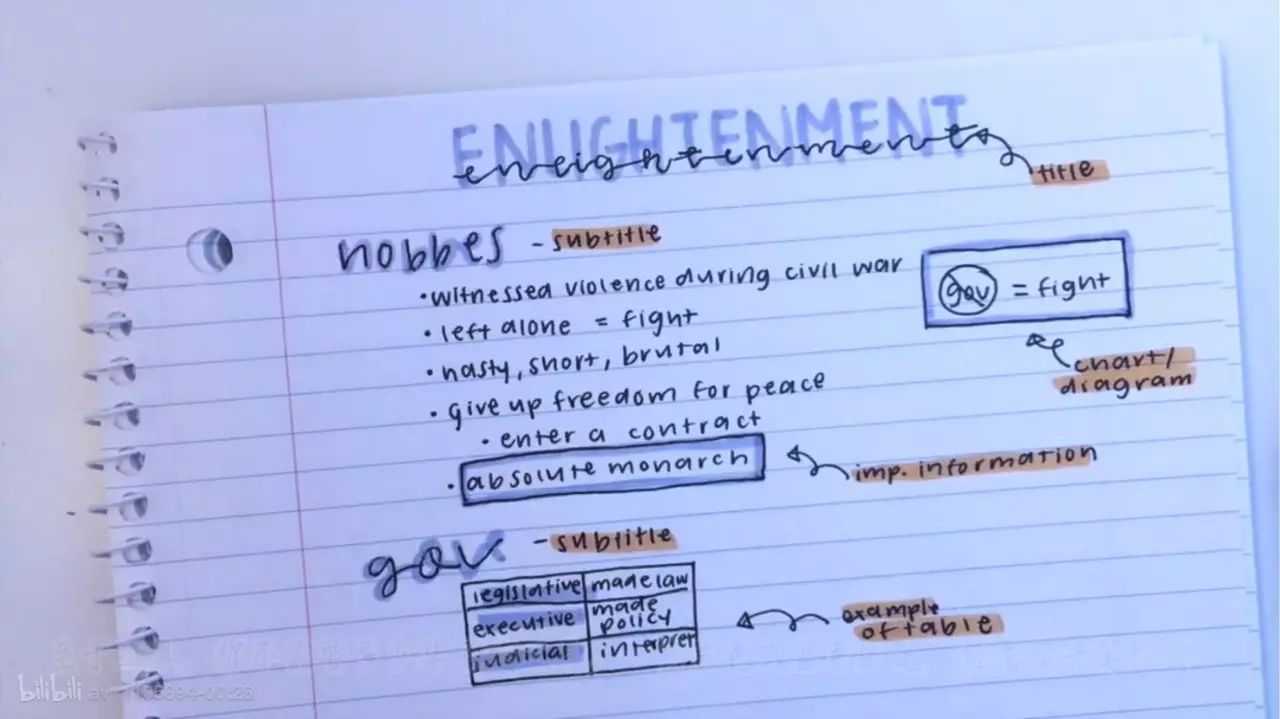 ENLIGHTENMENT
enlightenment
title
hobbes - subtitle
• witnessed violence during civil war
gov = fight
• left alone = fight
• nasty, short, brutal
chart/
diagram
• give up freedom for peace
• enter a contract
• absolute monarch
imp. information
gov - subtitle
legislative made law
executive made policy
judicial interpret
example
of table
bilibili